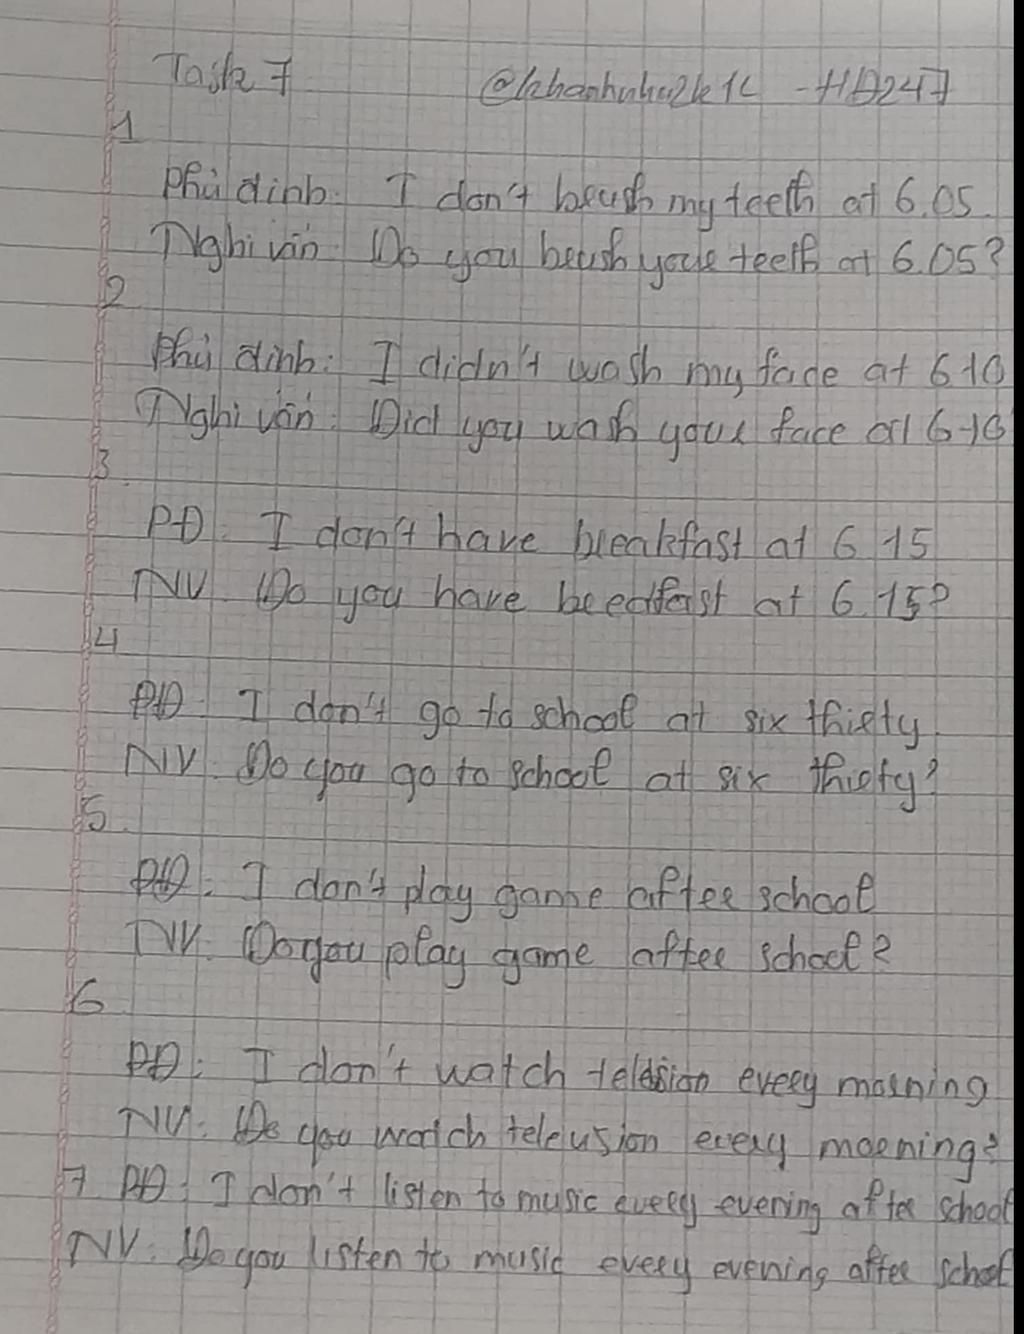 Task 7 @khanhnhu2k1L - HD247
1
Phủ định: I don't brush my teeth at 6.05.
Nghi vấn: Do you brush your teeth at 6.05?
2
Phủ định: I didn't wash my face at 6 10
Nghi vấn: Did you wash your face at 6 10
3
PĐ: I don't have breakfast at 6 15
NV: Do you have at 6.15?
4
PĐ: I don't go to school at six thirty.
NV: Do you go to school at six thirty?
5
PĐ: I don't play game after school
NV: Do you play game after school?
6
PĐ: I don't watch every morning
NV: Do you watch every morning?
7 PĐ: I don't listen to music every evening after school
NV: Do you listen to music every evening after school